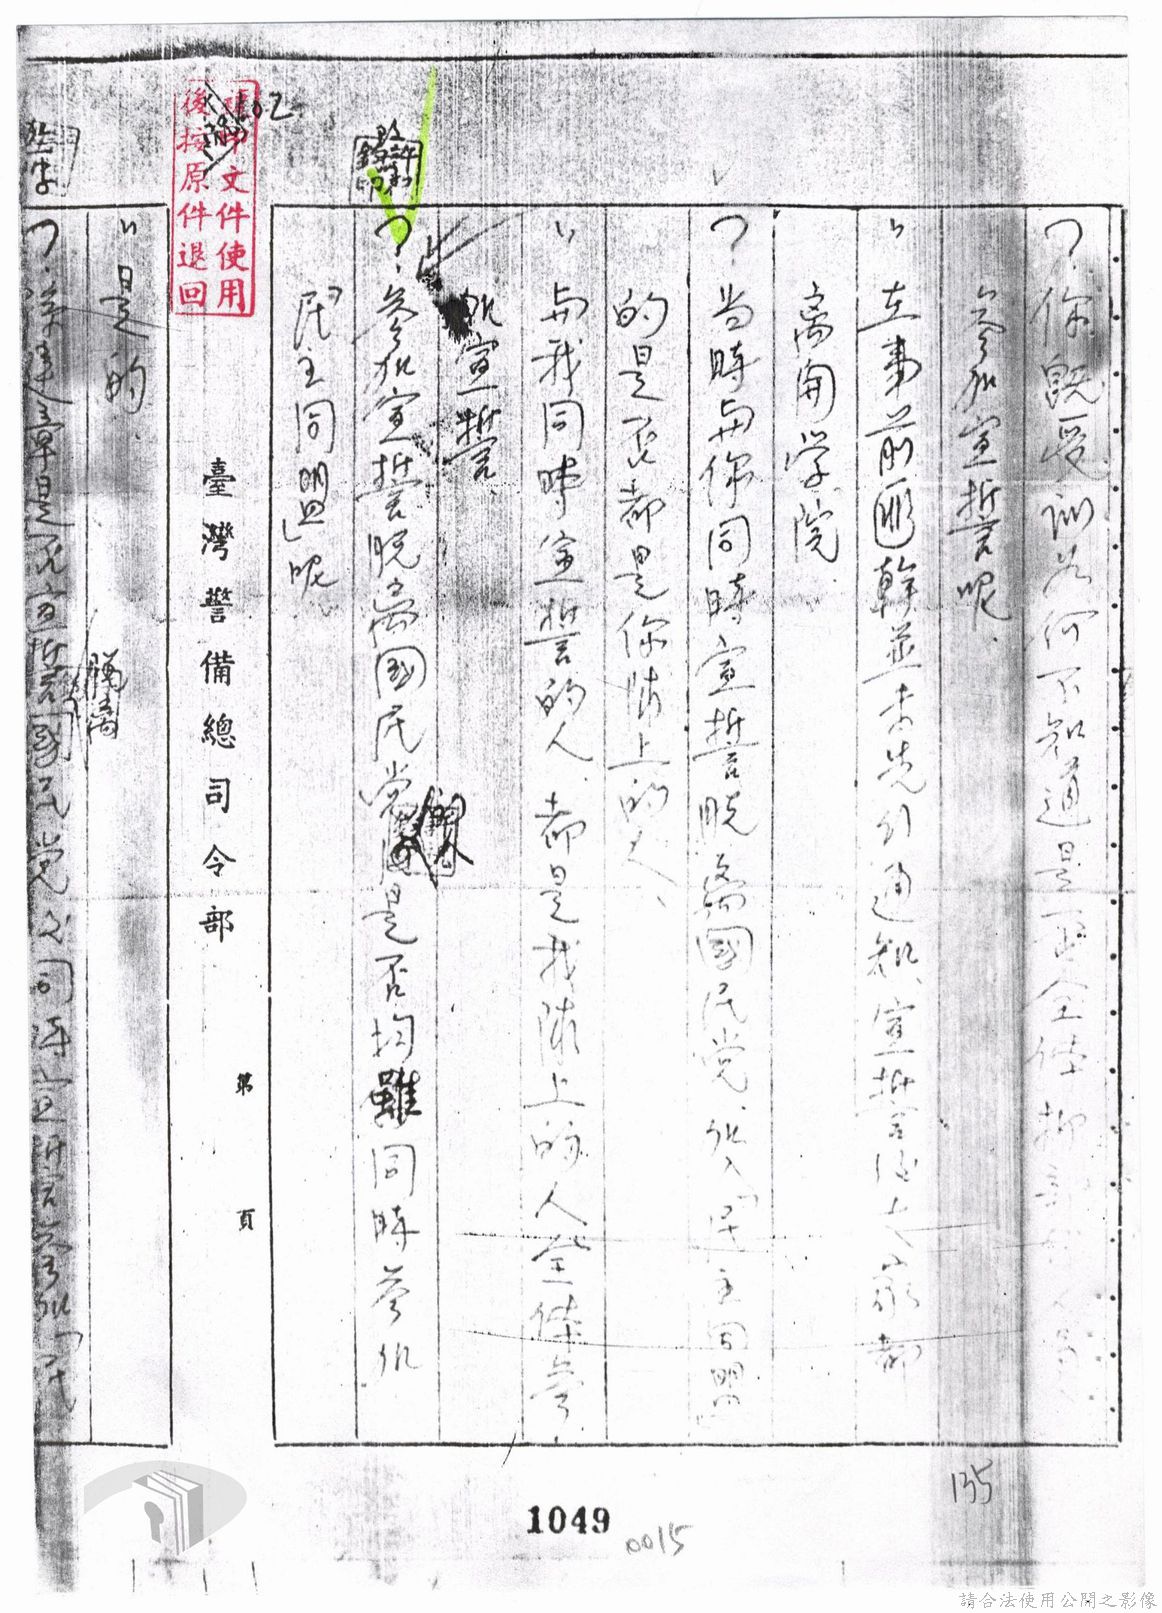 你既受訓為何不知道是否全体
參加宣誓呢、
在事前匪幹並未先行通知、宣誓後大家都
离開學院
当時與你同時宣誓脫离國民党、加入「民主同盟」
的是否都是你隊上的人、
與我同時宣誓的人、都是我隊上的人全体參
加宣誓、
參加宣誓脫离國民党是否均雖同時參加
「民主同盟」呢、
臺灣警備總司令部
第 頁
複印文件使用
後按原件退回
是的、
脫离
是否宣誓國民党又同時宣誓參加「民
1049
0015
135
請合法使用公開之影像